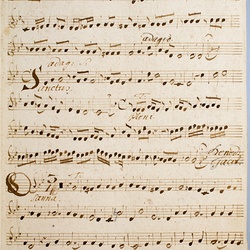 adagio
adagio
Sanctus
Pleni
Bene
Osanna